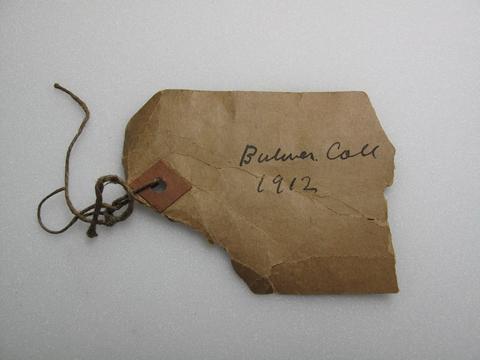 Bulwer. Coll
1912